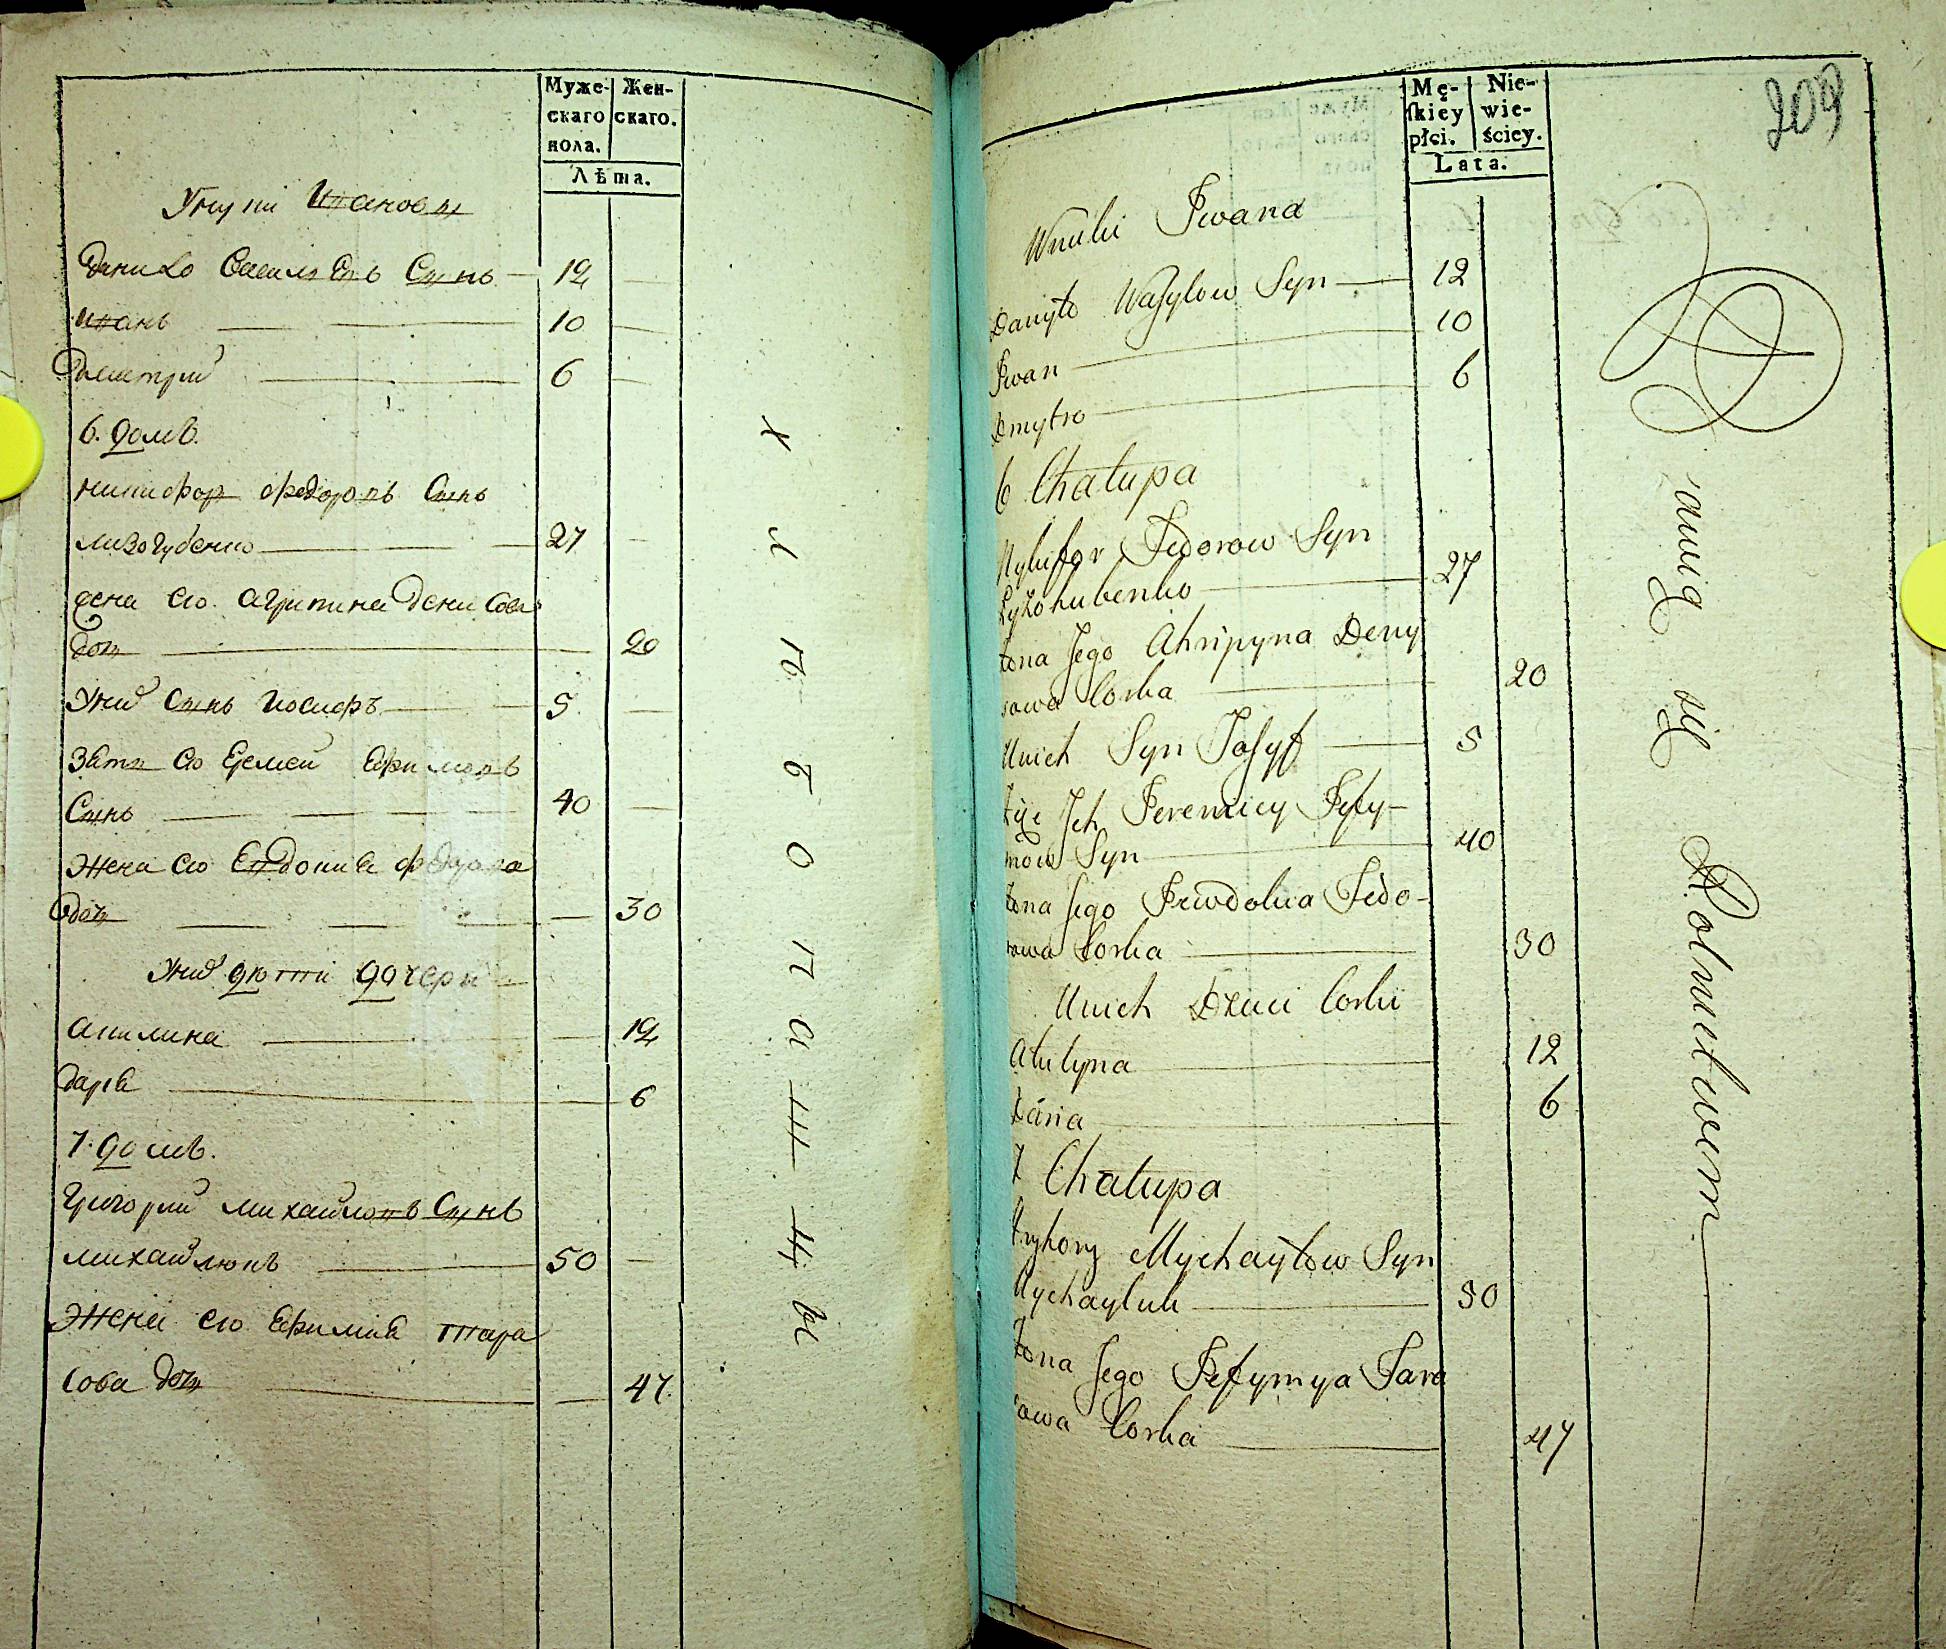 Муже-
скаго
пола.
Жен-
скаго.
Лѣта.
Унуки Ивановы
Данило Василевъ Сынъ 12
Иванъ 10
Дмитрий 6
6. домъ.
никифор федоровъ Сынъ
лизогубенко 27
жена его агрипина дениcова
доч 20
Уних Сынъ Иосифъ 5
Зать их Еремей Ефимовъ
Сынъ 40
жена его Евдокиа федорова
доч 30
Уних дѣти дочери
акилина 12
дариа 6
7. домъ.
Григорий михайловъ Сынъ
михайлюкъ 50
жена его Ефимиа тара
сова доч 47.
х л ѣ б о п а ш ц ы
Mę-
skiey
płci.
Nie-
wie-
ściey.
Lata.
209
Wnuki Iwana
Danyło Wasylow Syn 12
Iwan 10
Dmytro 6
6 Chałupa
Nykifor Fedorow Syn
Lyzohubenko 27
żona Jego Ahripyna Deny
sowa Corka 20
Unich Syn Josyf 5
Jch Jeremiey Jefy-
mow Syn 40
żona Jego Jewdokia Fedo-
rowa Corka 30
Unich Dzieci Corki
Akulyna 12
Daria 6
7 Chałupa
Hryhory Mychayłow Syn
Mychayluk 50
żona Jego Jefymya Tara
sowa Corka 47
Bawią się Rolnictwem